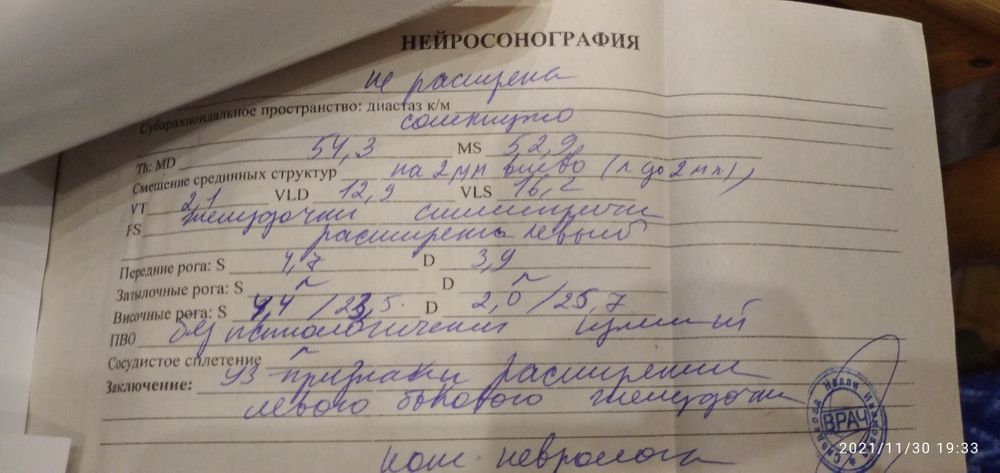 НЕЙРОСОНОГРАФИЯ
не расширена
Субарахноидальное пространство: диастаз к/м
сомкнуто
Th: MD 54,3 MS 52,9
Смещение срединных структур на 2 мм влево (N до 2 мм),
VT 2,1 VLD 12,9 VLS 16,2
FS желудочки
расширены левый
Передние рога: S 4,7 D 3,9
Затылочные рога: S N D N
Височные рога: S 4,4 /23,5. D 2,0 /25,7
ПВО без патологических
Сосудистое сплетение N
Заключение: УЗ признаки расширения
левого бокового желудочка
конс невролога
ВРАЧ
2021/11/30 19:33